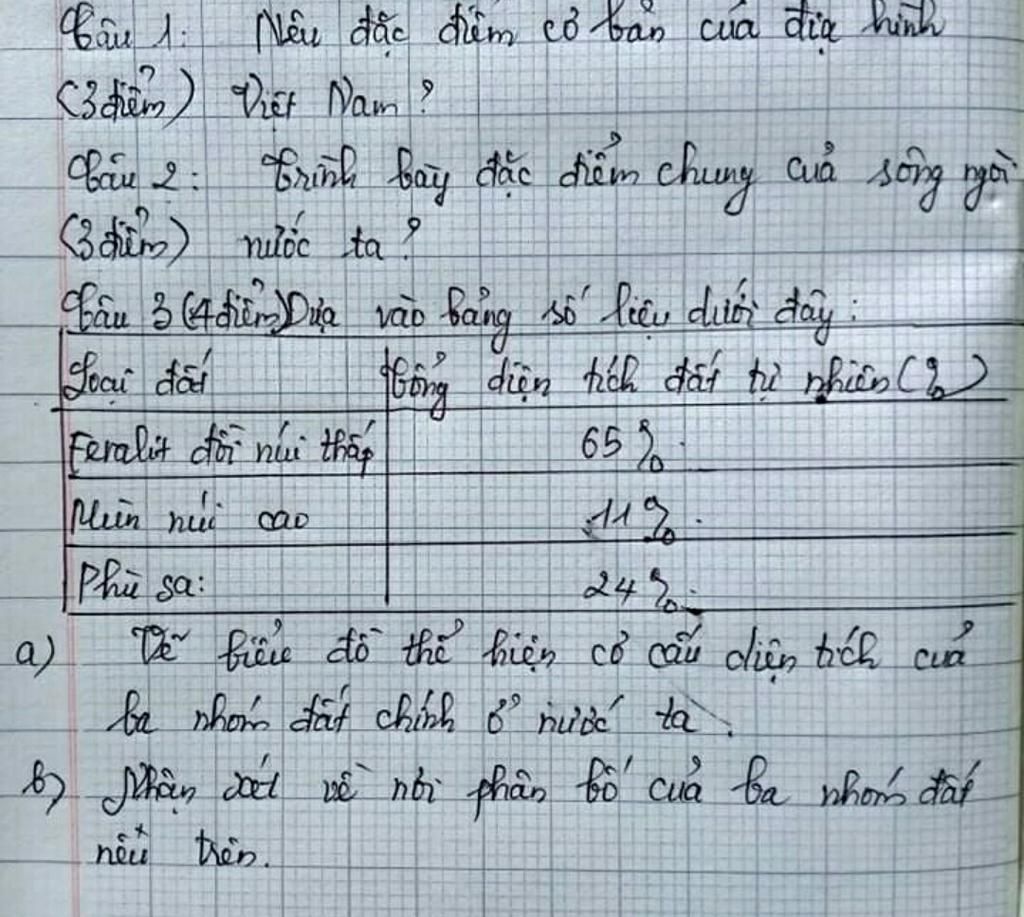 Câu 1: Nêu đặc điểm cơ bản của địa hình
(3 điểm) Việt Nam?
Câu 2: Trình bày đặc điểm chung của sông ngòi
(3 điểm) nước ta?
Câu 3 (4 điểm) Dựa vào bảng số liệu dưới đây:
Loại đất Tổng diện tích đất tự nhiên (%)
Feralit đồi núi thấp 65%.
Miền núi cao 11%.
Phù sa: 24%.
a) Vẽ biểu đồ thể hiện cơ cấu diện tích của
ba nhóm đất chính ở nước ta.
b) Nhận xét về nơi phân bố của ba nhóm đất
nêu trên.